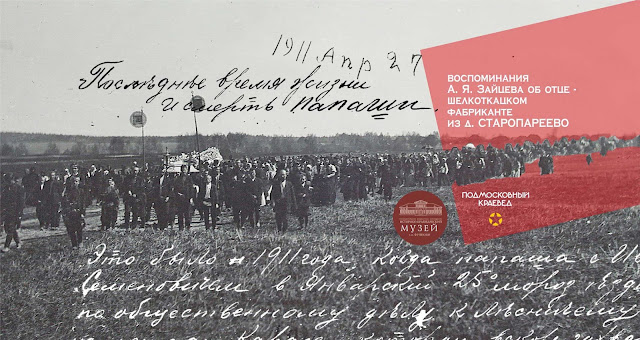 1911. Апр 27
Послѣднѣе время жизни
и смерть папаши.
ВОСПОМИНАНИЯ
А. Я. ЗАЙЦЕВА ОБ ОТЦЕ -
ШЕЛКОТКАЦКОМ
ФАБРИКАНТЕ
ИЗ Д. СТАРОПАРЕЕВО
МУЗЕЙ
ПОДМОСКОВНЫЙ
КРАЕВЕД
Это было 1911 года, когда папаша с
Семеновичем в Январский 25° мороз
по общественному дѣлу к лѣсничему